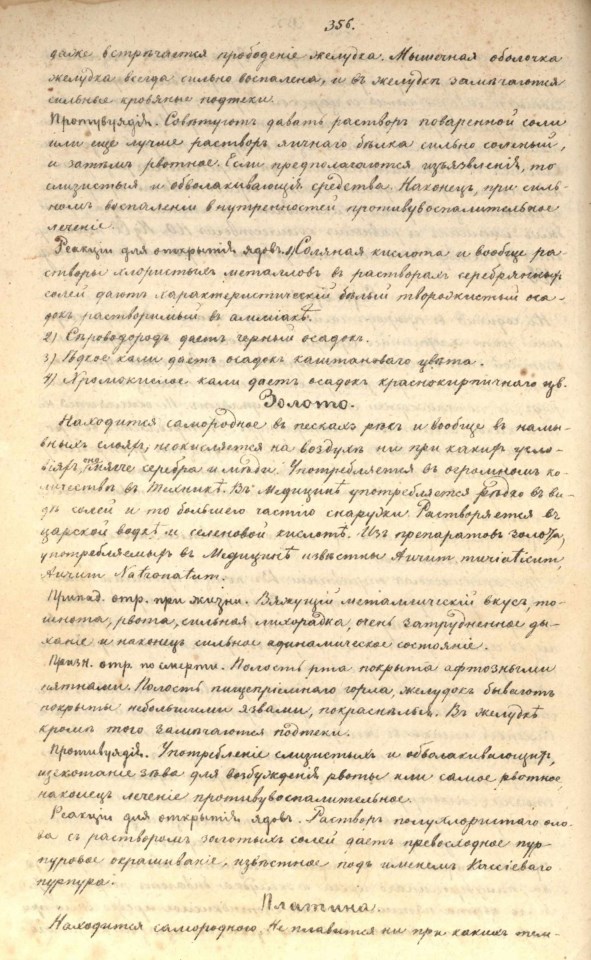 356.
даже встрѣчается прободеніе желудка. Мышечная оболочка
желудка всегда сильно воспалена, и въ желудкѣ замѣчаются
сильные кровяные подтеки.
Противуядія. Совѣтуютъ давать растворъ поваренной соли
или еще лучше растворъ яичнаго бѣлка сильно соленый,
и затѣмъ рвотное. Если предполагаются изъязвленія, то
слизистыя и обволакивающія средства. Наконецъ, при силь-
номъ воспаленіи внутренностей противувоспалительное
леченіе.
Реакціи для открытія ядовъ. 1) Соляная кислота и вообще ра-
створы хлористыхъ металловъ въ растворахъ серебрянныхъ
солей даютъ характеристическій бѣлый творожистый оса-
докъ растворимый въ амміакѣ.
2) Сѣроводородъ даетъ черный осадокъ.
3) Ѣдкое кали даетъ осадокъ каштановаго цвѣта.
4) Хромокислое кали даетъ осадокъ краснокирпичнаго цв.
Золото.
Находится самородное въ пескахъ рѣкъ и вообще въ намы-
вныхъ слояхъ, неокисляется на воздухѣ ни при какихъ усло-
віяхъ, оно мягче серебра и мѣди. Употребляется въ огромномъ ко-
личествѣ въ техникѣ. Въ Медицинѣ употребляется рѣдко въ ви-
дѣ солей и то большею частію снаружи. Растворяется въ
царской водкѣ и селеновой кислотѣ. Изъ препаратовъ золота,
употребляемыхъ въ Медицинѣ извѣстны Aurum muriaticum,
Aurum Natronatum.
Припад. отр. при жизни. Вяжущій металлическій вкусъ, то-
шнота, рвота, сильная лихорадка, очень затрудненное ды-
ханіе и наконецъ сильное адинамическое состояніе.
Призн. отр. по смерти. Полость рта покрыта афтозными
пятнами. Полость пищепріемнаго горла, желудокъ бываютъ
покрыты небольшими язвами, покраснѣлыя. Въ желудкѣ
кромѣ того замѣчаются подтеки.
Противуядія. Употребленіе слизистыхъ и обволакивающихъ,
щекотаніе зѣва для возбужденія рвоты или самое рвотное,
наконецъ леченіе противувоспалительное.
Реакціи для открытія ядовъ. Растворъ полухлористаго оло-
ва съ растворомъ золотыхъ солей даетъ превосходное пур-
пуровое окрашиваніе, извѣстное подъ именемъ Кассіеваго
пурпура.
Платина.
Находится самородного. Не плавится ни при какихъ тем-